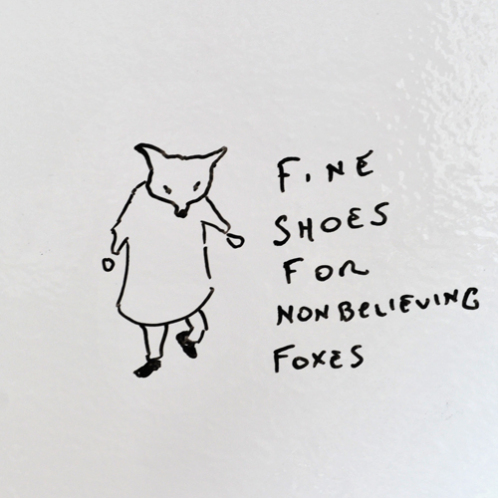 FINE
SHOES
FOR
NONBELIEVING
FOXES